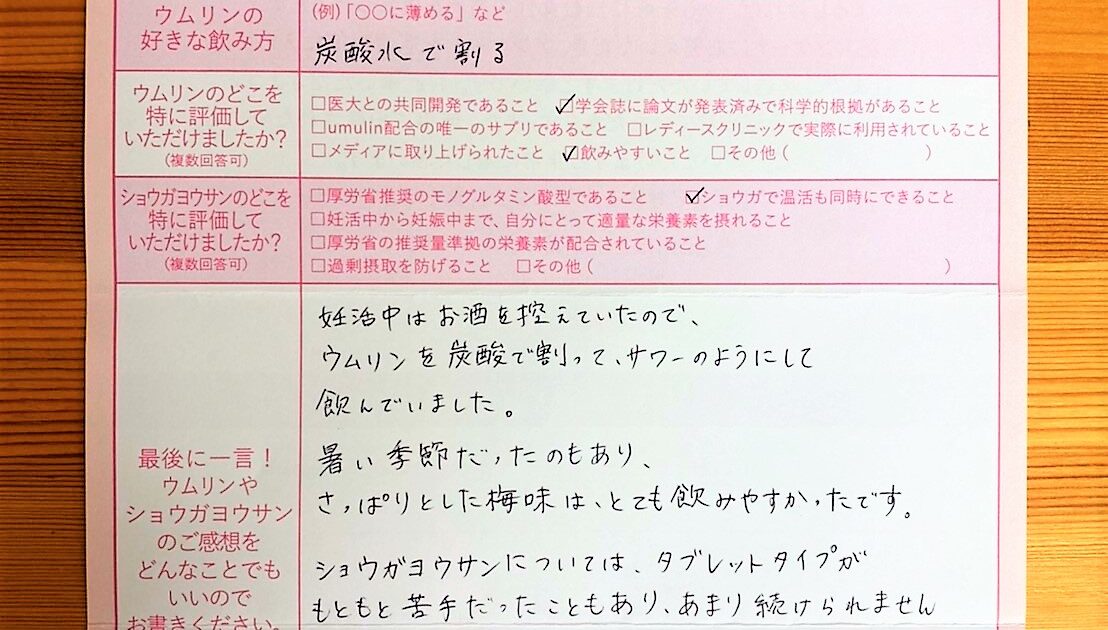 ウムリンの
好きな飲み方
(例)「〇〇に薄める」など
炭酸水で割る
ウムリンのどこを
特に評価して
いただけましたか?
(複数回答可)
□医大との共同開発であること ☑学会誌に論文が発表済みで科学的根拠があること
□umulin配合の唯一のサプリであること □レディースクリニックで実際に利用されていること
□メディアに取り上げられたこと ☑飲みやすいこと □その他( )
ショウガヨウサンのどこを
特に評価して
いただけましたか?
(複数回答可)
□厚労省推奨のモノグルタミン酸型であること ☑ショウガで温活も同時にできること
□妊活中から妊娠中まで、自分にとって適量な栄養素を摂れること
□厚労省の推奨量準拠の栄養素が配合されていること
□過剰摂取を防げること □その他( )
最後に一言!
ウムリンや
ショウガヨウサン
のご感想を
どんなことでも
いいので
お書きください。
妊活中はお酒を控えていたので、
ウムリンを炭酸で割って、サワーのようにして
飲んでいました。
暑い季節だったのもあり、
さっぱりとした梅味は、とても飲みやすかったです。
ショウガヨウサンについては、タブレットタイプが
もともと苦手だったこともあり、あまり続けられません